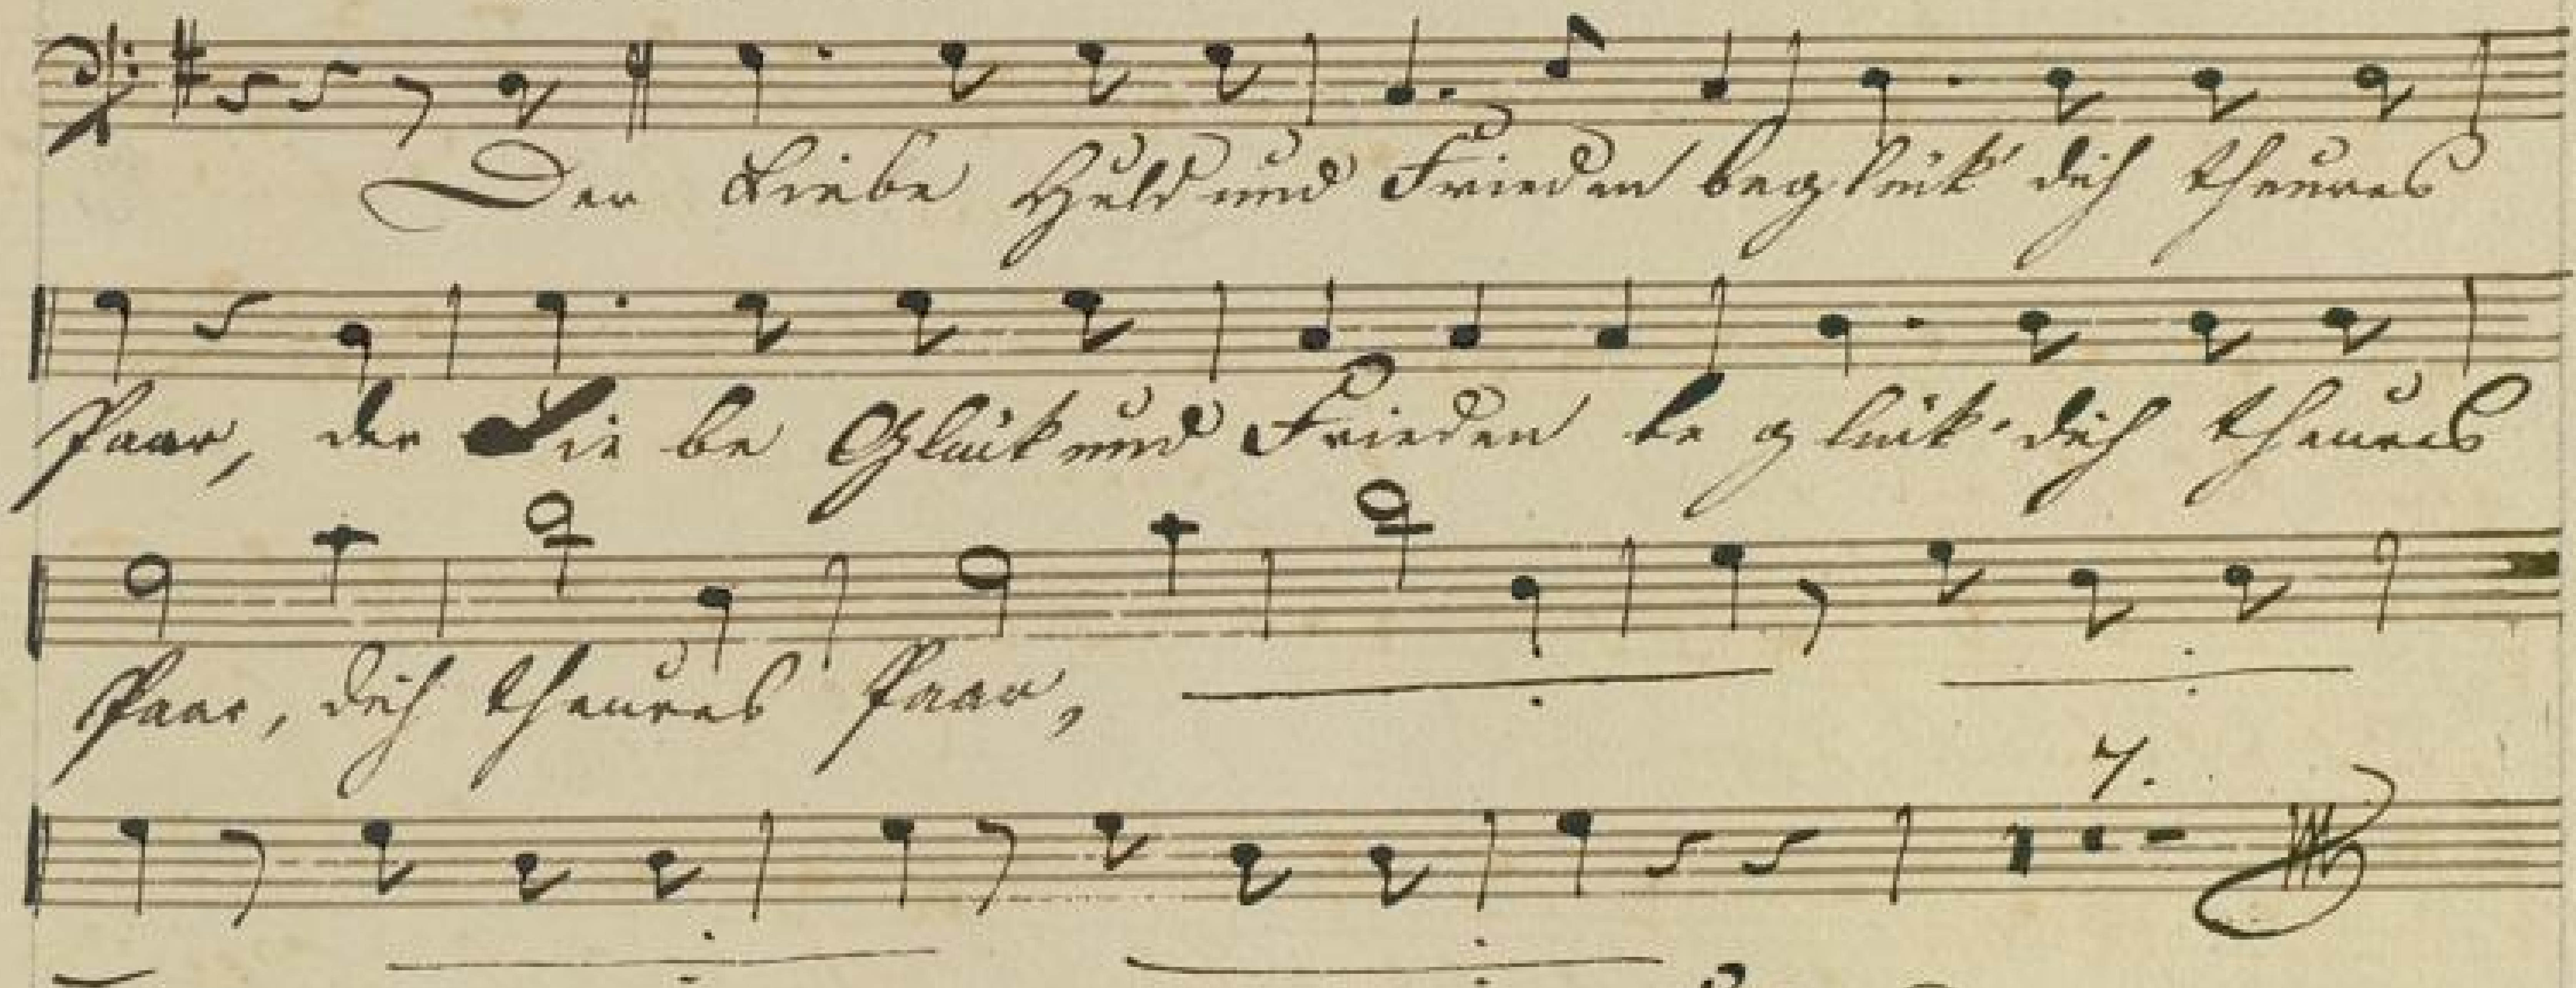 Der Liebe Huld und Frieden beglük' dich theures
Paar, der Liebe Glük und Frieden beglük' dich theures
Paar, dich theures Paar,
7.